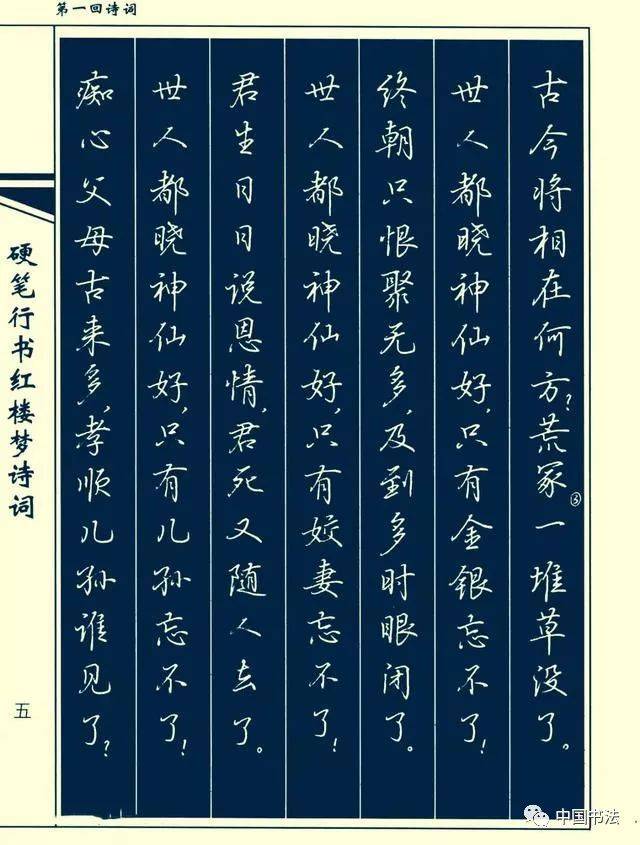 第一回诗词
古今将相在何方?荒冢③一堆草没了。
世人都晓神仙好,只有金银忘不了!
终朝只恨聚无多,及到多时眼闭了。
世人都晓神仙好,只有姣妻忘不了!
君生日日说恩情,君死又随人去了。
世人都晓神仙好,只有儿孙忘不了!
痴心父母古来多,孝顺儿孙谁见了?
硬笔行书红楼梦诗词
五
中国书法